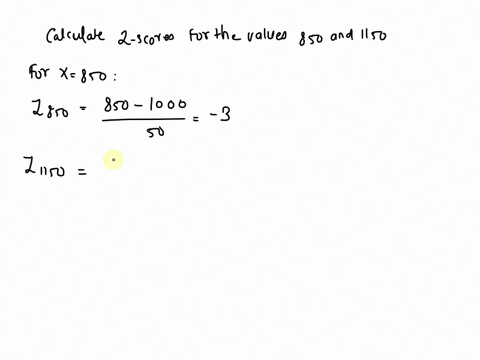 Calculate Z-scores for the values 850 and 1150
For x = 850 :
Z850 = 850 - 1000 / 50 = -3
Z1150 =